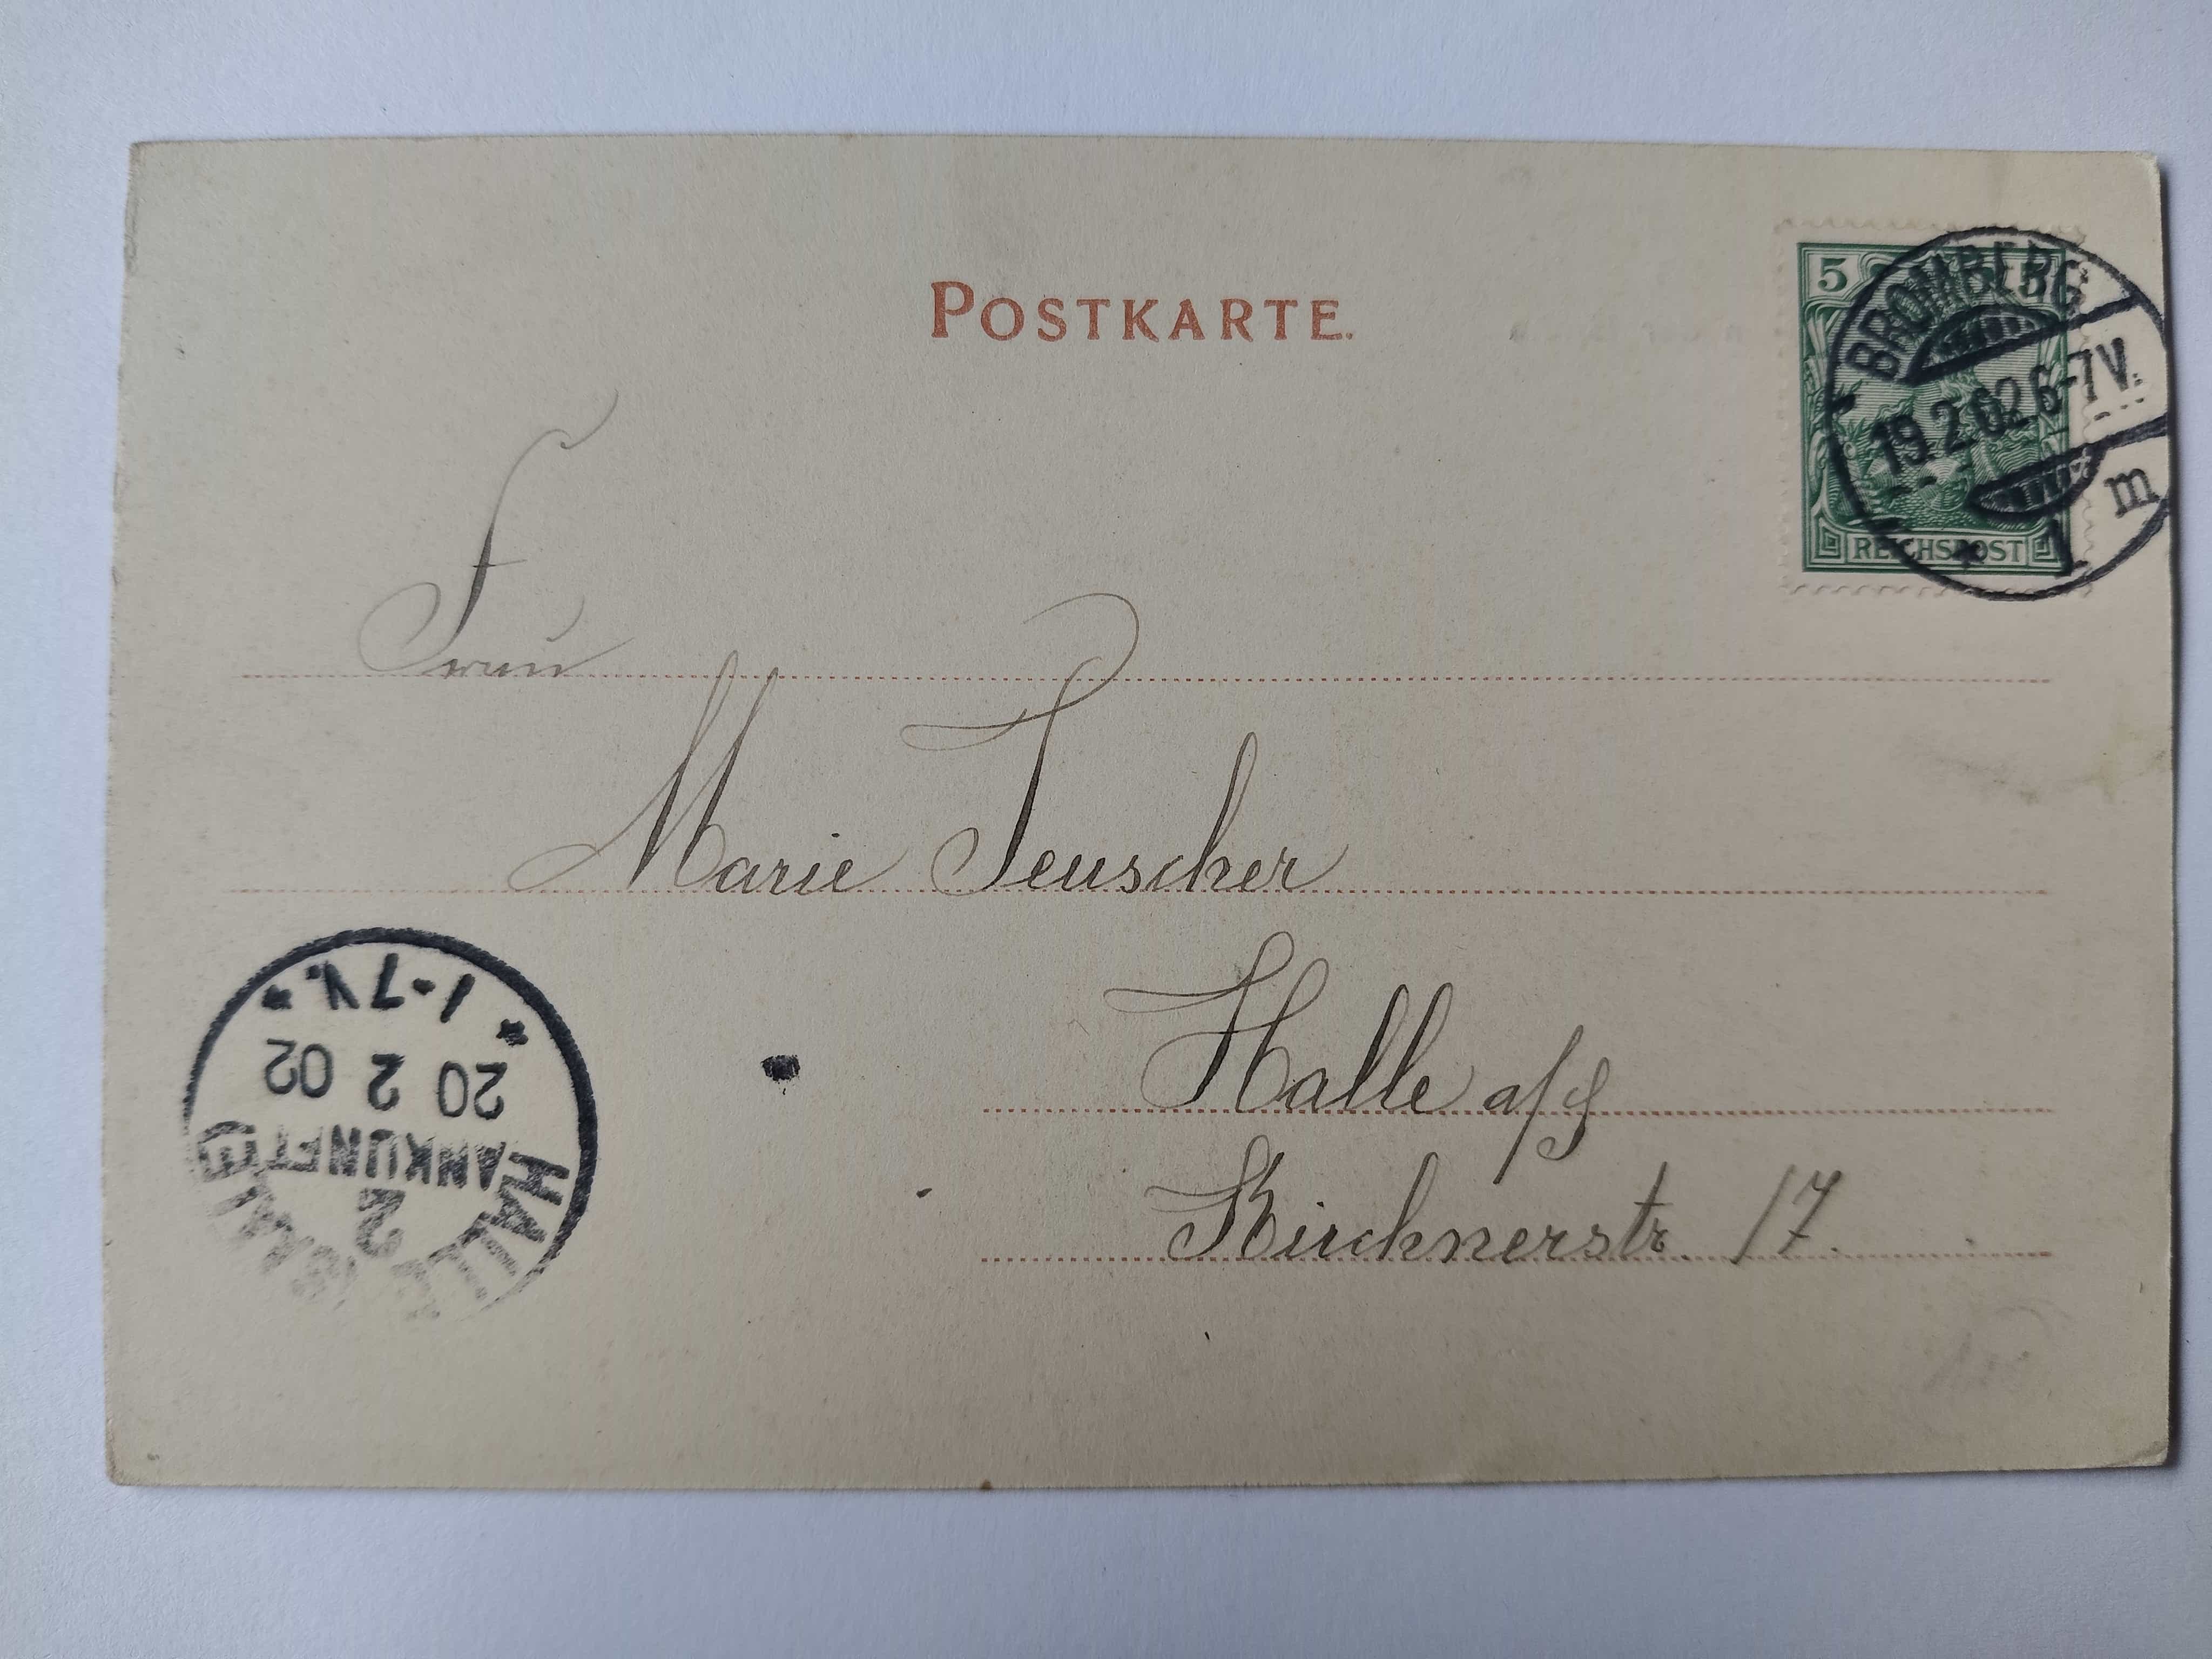 POSTKARTE.
5
BROMBERG
19.2.02 6-7V.
* 1 m
REICHSPOST
Frau
Marie Teuscher
Halle a/S
Kirchnerstr. 17.
HALLE
2
ANKUNFT
20 2 02
* 1-7V. *